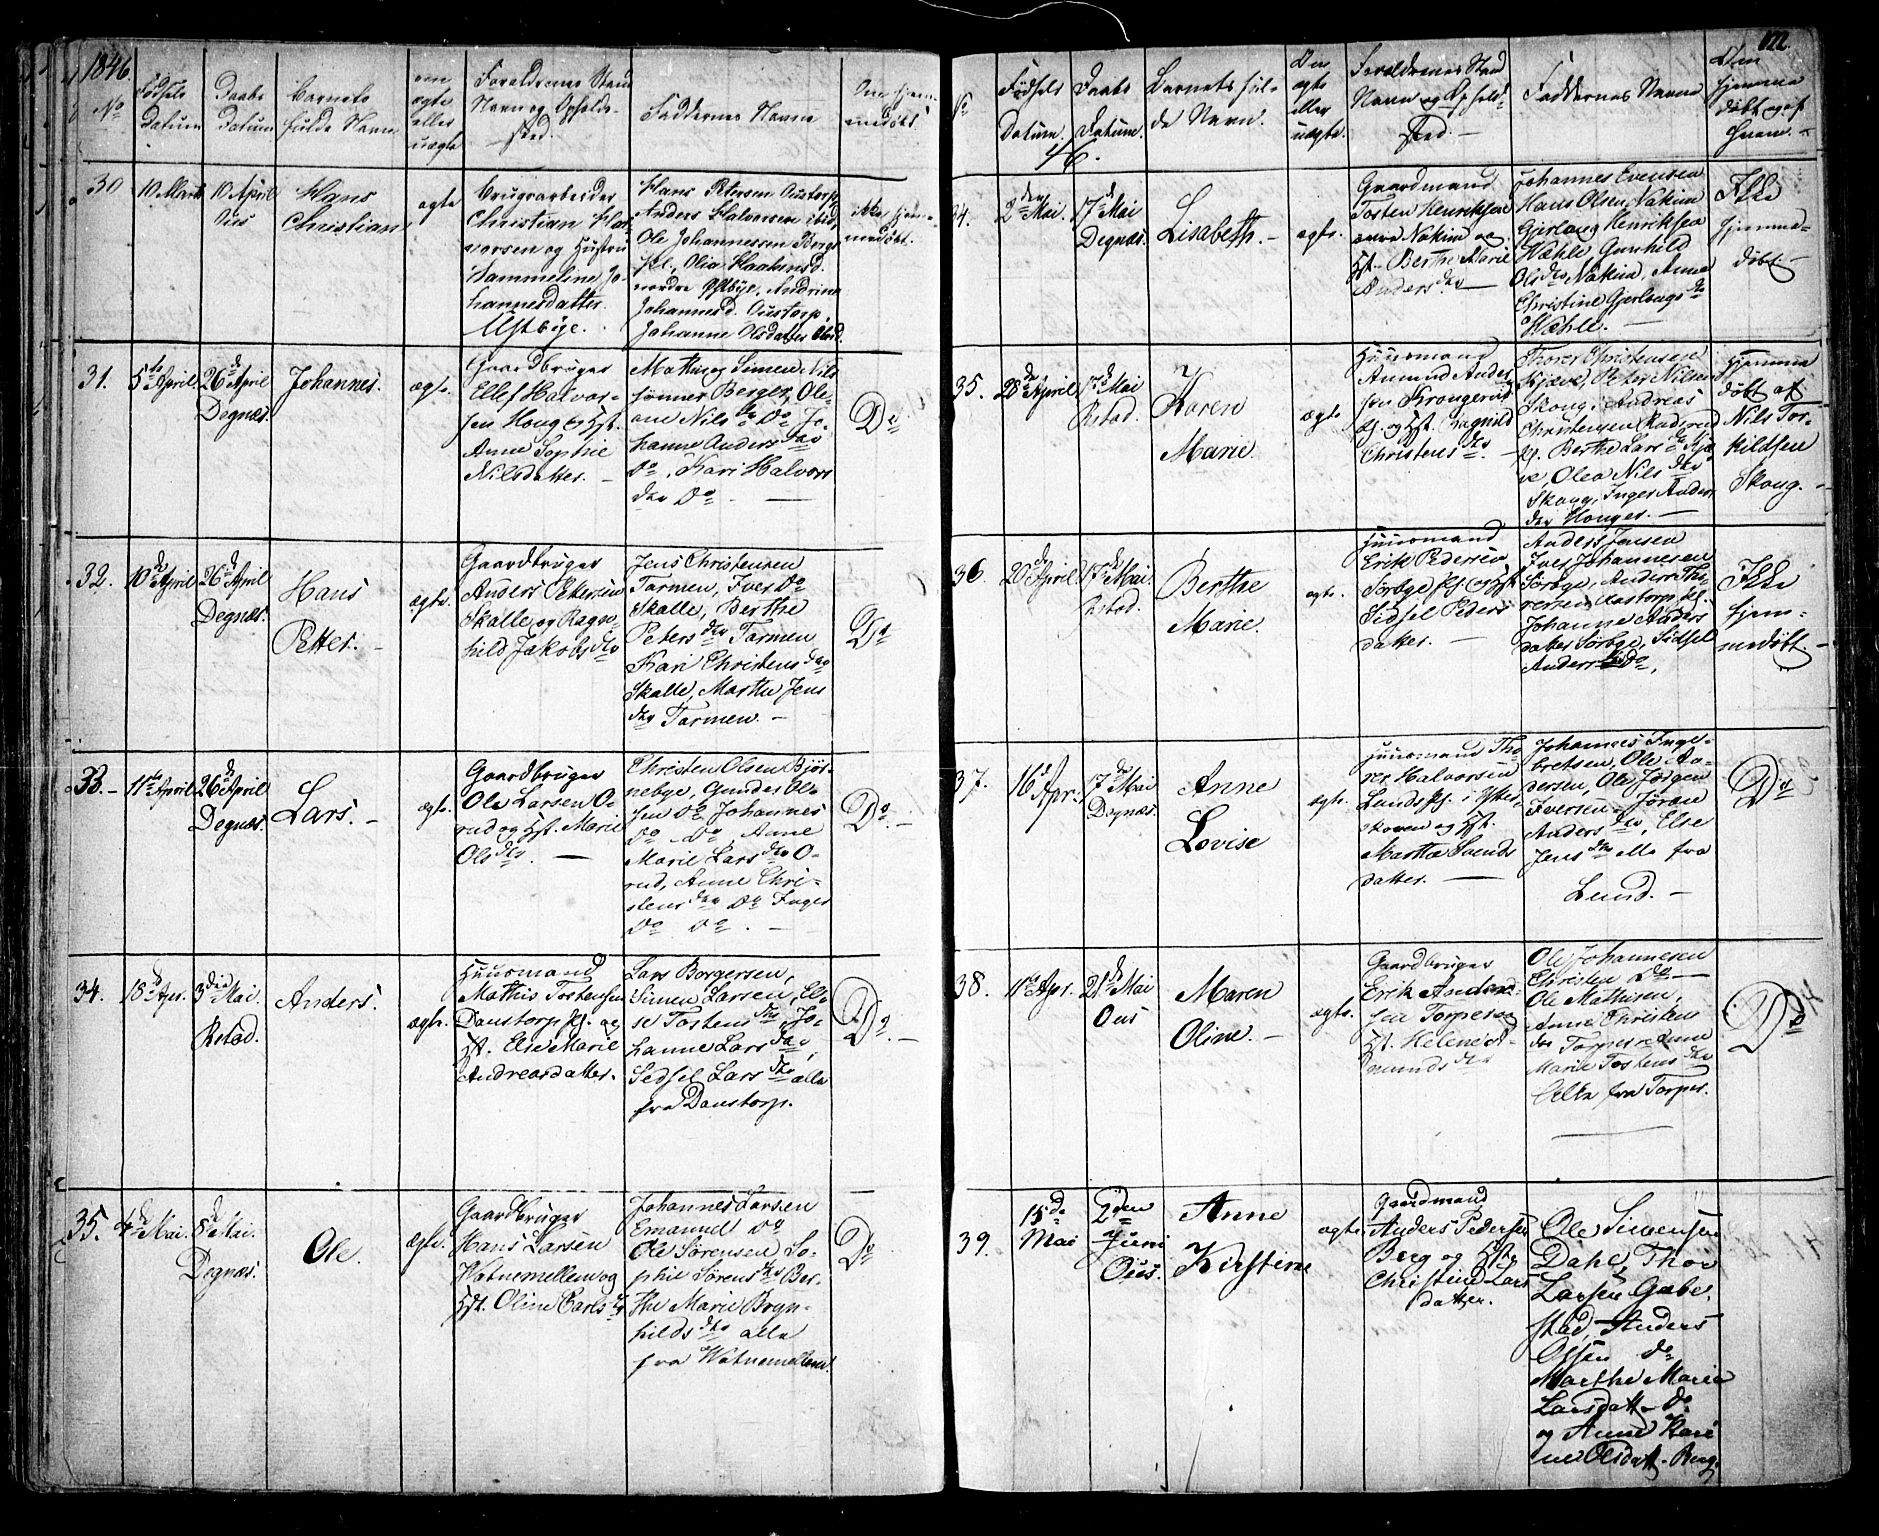 1846.
No
Fødsels
datum
Daabs
datum
Barnets
fulde Navn
om
ægte
eller
uægte
Forældrenes Stand
Navn og Opholds-
sted.
Faddernes Navne
Om hjem-
medøbt.
30
10 Marts
10 April
Ous
Hans
Christian
ægte
Brugsarbeider
Christian Hal-
vorsen og Hustru
Jo-
hannesdatter
Østbye.
Hans Petersen Oustorp,
Anders Halvorsen ibid,
Ole Johannessen Berg
pl., Olia Haakensd.
nordre Østbye, Andrine
Johannesd. Oustorp,
Johanne Olsdatter ibid.
ikke hjem-
medøbt.
31.
5te April.
26de April
Degnæs.
Johannes.
ægte.
Gaardbruger
Ellef Halvor-
sen Houg og Hst.
Anne Sophie
Nilsdatter. -
Mathis og Simen Nils
sønner Berger, Ole-
ane Nils dtr Do Jo-
hanne Anders dtr
Do, Kari Halvors
dtr Do - —
Do
32.
10de April
26de April
Degnæs.
Hans
Petter. -
ægte.
Gaardbruger
Anders Pettersen
Skalle og Ragn-
hild Jakobs dtr
Jens Christensen
Tarmen, Iver Do
Skalle, Berthe
Peters dtr Tarmen
Kari Christens dtr
Skalle, Marthe Jens
dtr Tarmen. -
Do
33. -
11te April
26de April
Degnæs.
Lars. -
ægte.
Gaardbruger
Ole Larsen O-
rud og Hst. Marie
Ols dtr. —
Christen Olsen Bjør-
nebye, Gunder Ol-
sen Do, Johannes
Do Do, Anne
Marie Lars dtr O-
rud, Anne Chri-
stens dtr Do Inger
Do Do. -
Do. -
34.
18de Apr.
3die Mai.
Rstad.
Anders.
ægte.
Huusmand
Mathis Tostensen
Danstorp pl. og
Hst. Else Marie
Andreasdatter.
Lars Borgersen,
Simen Larsen, El-
se Tostens dtr, Jo-
hanne Lars dtr,
Sidsel Lars dtr alle
fra Danstorp.
Do. -
35.
4de Mai.
8de Mai.
Degnæs.
Ole.
ægte.
Gaardbruger
Hans Larsen
Watnemellem og
Hst. Oline Carls dtr
Johannes Larsen
Emanuel Do
Ole Sørensen So-
phie Sørens dtr Ber-
the Marie Bryn-
hilds dtr alle
fra Watnemellem.
Do
122.
No
Fødsels
Datum.
46.
Daabs
Datum.
Barnets ful-
de Navn.
Om
ægte
eller
uægte.
Forældrenes Stand
Navn og Ophold-
sted. -
Faddernes Navne
Om
hjemme
døbt og af
hvem. -
34.
2den Mai.
17de Mai
Degnæs.
Lisabeth. -
ægte.
Gaardmand
Tosten Henriksen
Nakim og
Hst. Berthe Marie
Anders dtr —
Johannes Evensen
Hans Olsen, Nakim
Gjerloug Henriksen
Wæhle, Gunhild
Ols dtr, Nakim, Anne
Christine Gjerlougs dtr
Wæhle. —
Ikke
hjemme-
døbt -
35.
28de April
17de Mai
Rstad.
Karen
Marie
ægte
Huusmand
Amund Ander
sen
pl. og Hst. Ragnild
Christens dtr.
Thorer Christensen
Kjæve, Peter Nilsen
Skoug, Andreas
Christensen
pl. Berthe Lars dtr Kjæ-
ve, Olea Nils dtr
Skoug, Inger Anders
dtr Houger. —
Hjemme
døbt af
Nils Tor-
kildsen
Skoug. -
36.
20de April
17de Mai.
Rstad.
Berthe
Marie.
ægte.
Huusmand
Erik Pedersen
Sørbye pl. og Hst.
Sidsel Peders
datter. —
Anders Jensen
Iver Johannesen
Sørbye, Anders Tho-
rersen Aastorp pl.
Johanne Anders
datter Sørbye, Sidsel
Anders Do,
Ikke
hjem-
medøbt. -
37.
16de Apr.
17de Mai
Degnæs.
Anne
Lovise
ægte.
Huusmand Tho
rer Halvorsen
Lunds pl. i Yster-
skoven og Hst.
Marthe Svends
datter. —
Johannes Inge-
bretsen, Ole An-
dersen, Ole Jørgen
Iversen, Jøran
Anders dtr, Else
Jens dtr alle fra
Lund. -
Do
38.
11te Apr.
21de Mai
Ous
Maren
Oline. -
ægte.
Gaardbruger
Erik Ander-
sen Torper og
Hst. Helene A-
munds dtr
Ole Johannesen
Christen Do —
Ole Mathisen,
Anne Christens
dtr Torper Anne
Marie Tostens dtr
Alle fra Torper.
Do
39.
15de
Mai
2den
Juni
Ous.
Anne
Kirstine
ægte.
Gaardmand
Anders Pedersen
Berg og Hst.
Christine Lars
datter.
Ole Simensen
Dahl, Thor
Larsen Gabe-
stad, Anders
Olsen do
Marthe Marie
Larsdatt. do
og Anne Kari
ne Olsdatt. Berg.